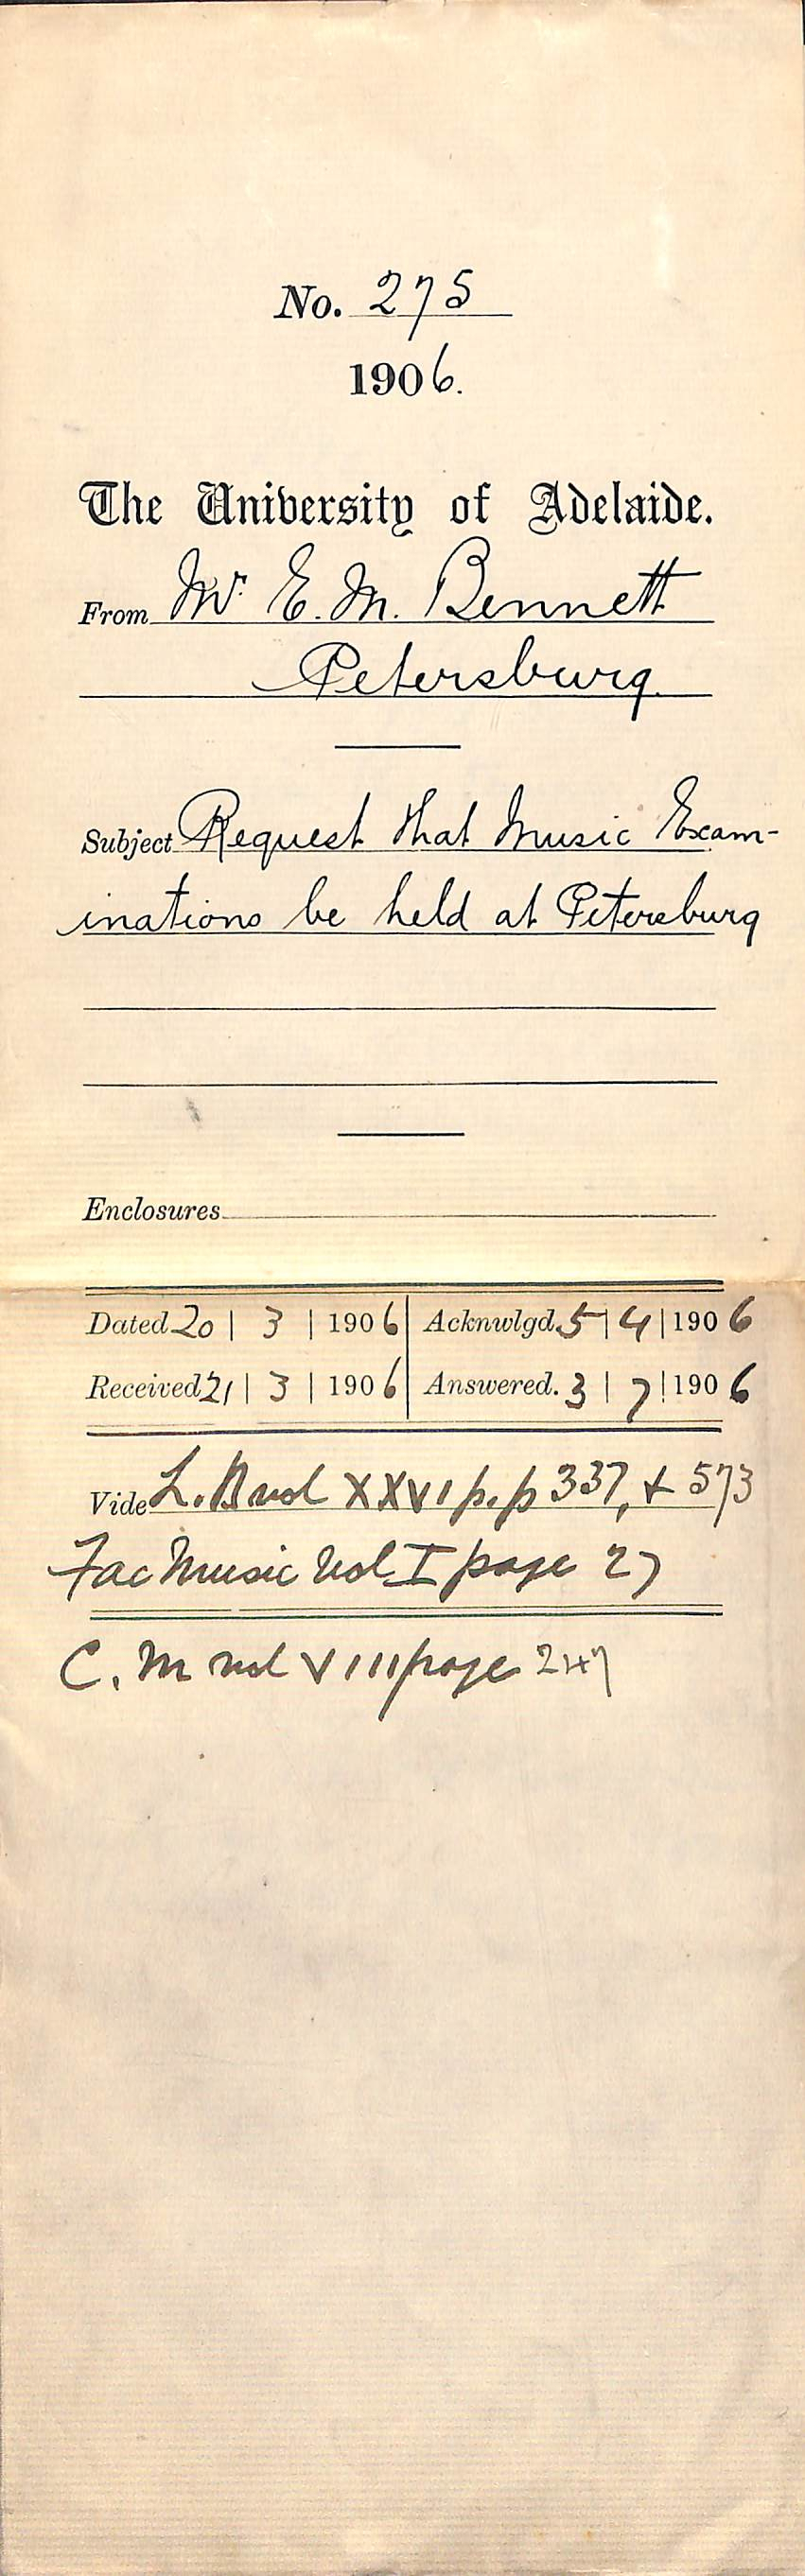 No. 275
1906.
The University of Adelaide.
From Mr. E. M. Bennett
Petersburg.
Subject Request that Music Exam-
inations be held at Petersburg
Enclosures
Dated 20 | 3 | 1906 Acknwlgd. 5 | 4 | 1906
Received 21 | 3 | 1906 Answered. 3 | 7 | 1906
Vide L. B vol XXVI p. p 337, & 573
Fac Music Vol I page 27
C. M vol VIII page 247